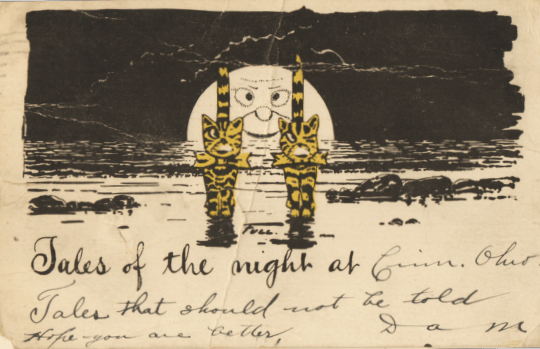 FULL
Tales of the night at Cinn. Ohio.
Tales that should not be told
Hope you are better, D a M